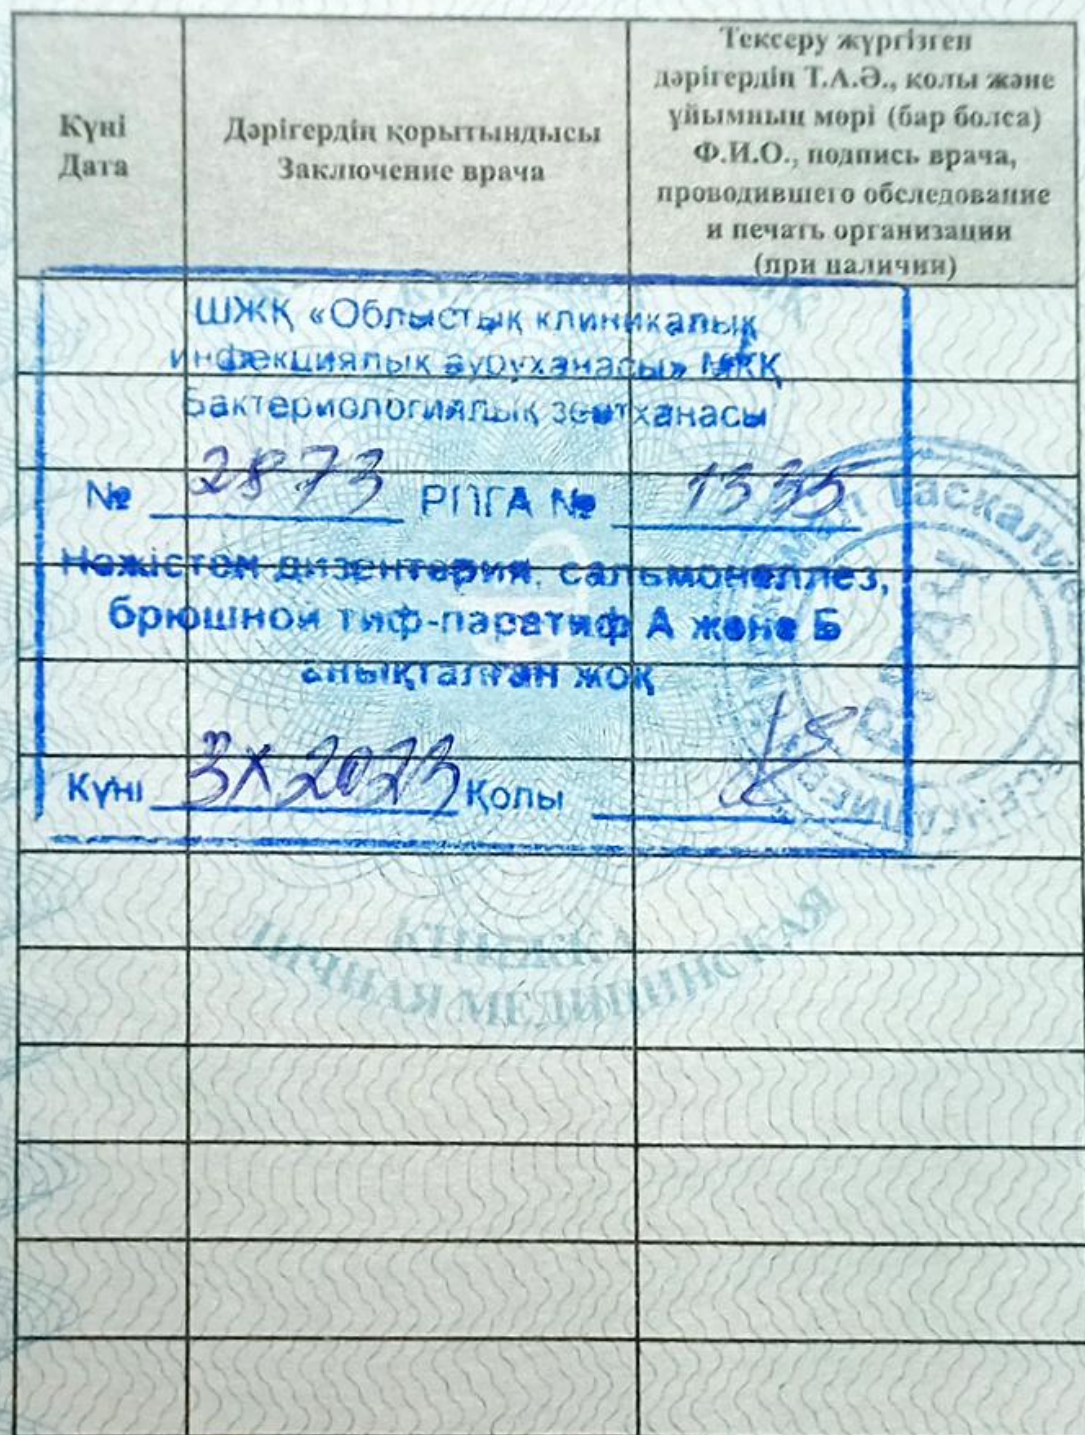 Күні
Дата
Дәрігердің қорытындысы
Заключение врача
Тексеру жүргізген
дәрігердің Т.А.Ә., қолы және
ұйымның мөрі (бар болса)
Ф.И.О., подпись врача,
проводившего обследование
и печать организации
(при наличии)
ШЖҚ «Облыстық клиникалық
инфекциялық ауруханасы» МКҚ
Бактериологиялық зертханасы
№ 2873 РПГА № 1335
Нәжістен дизентерия, сальмонеллез,
брюшной тиф-паратиф А және Б
анықталған жоқ
Күні 3 X 2023 Қолы
КНИЖКА
ЛИЧНАЯ МЕДИЦИНСКАЯ